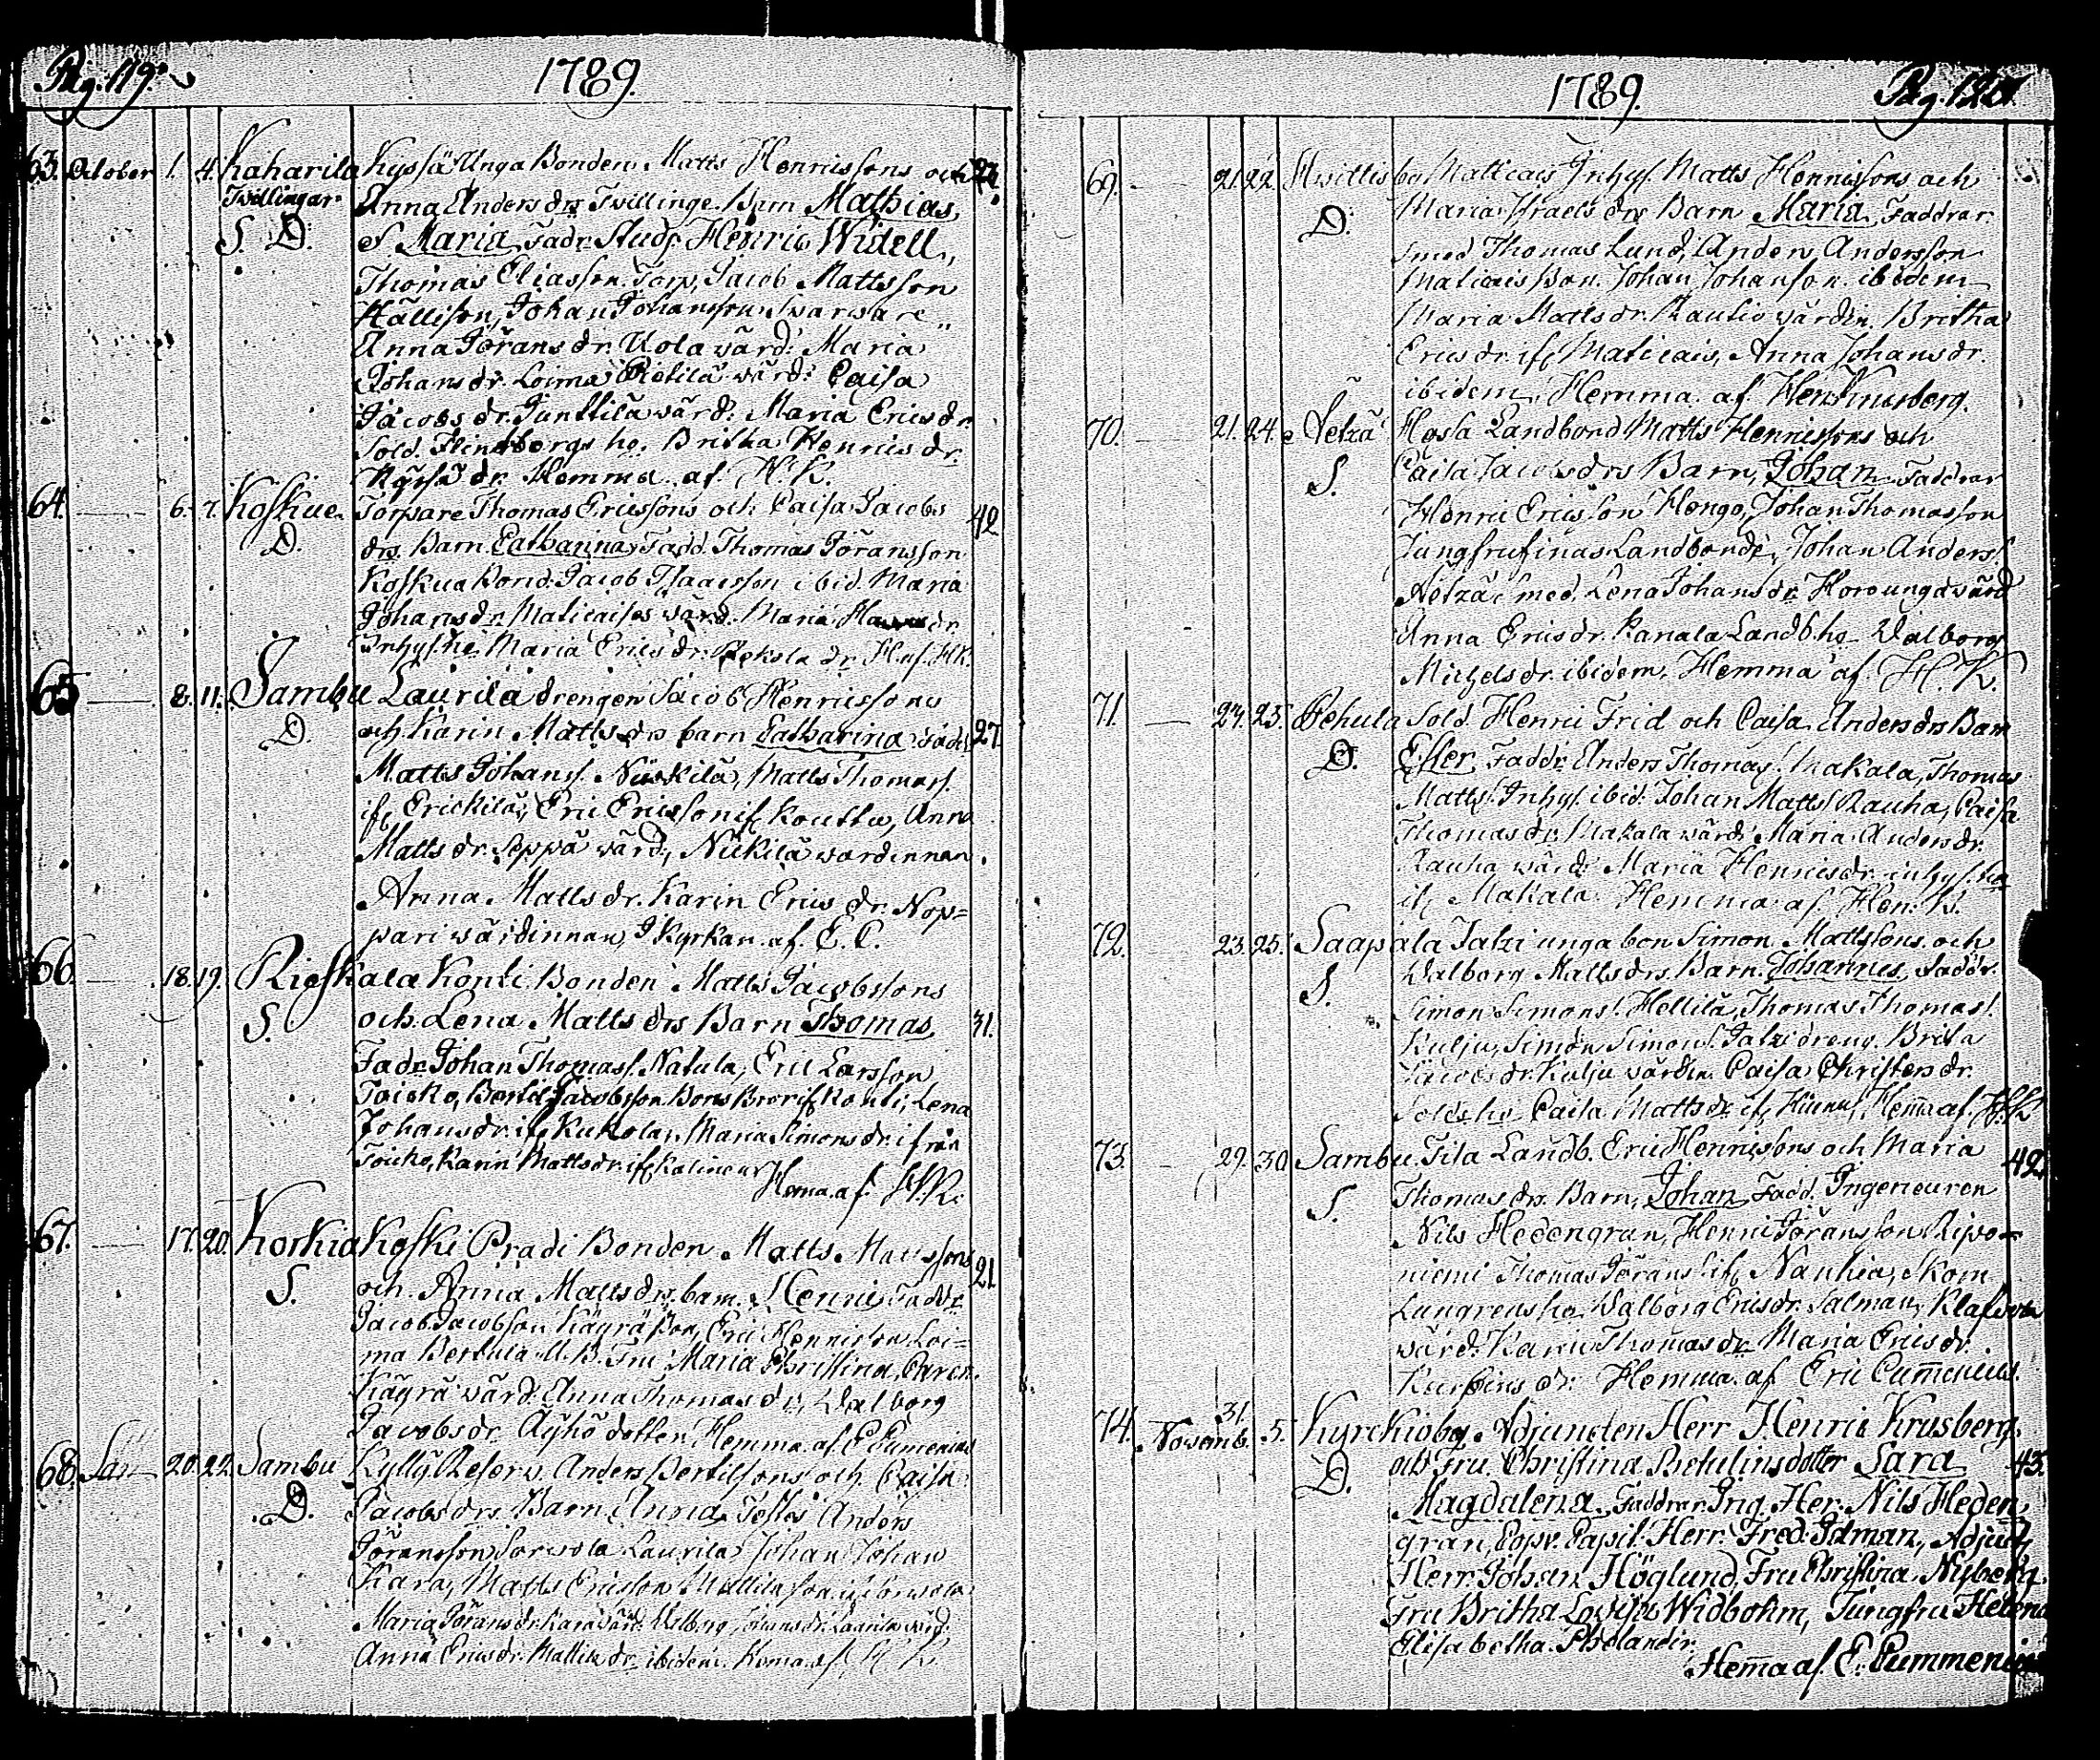 Pag. 119.
1789.
63. October 1. 4. Kaharila Kyssä Unga Bonden Matts Henricssons och
Twillingar Anna Anders drs Twillinge Barn Mathias
S. D. & Maria Fadr. Stud. Henric Widell,
Thomas Eliasson Torp, Jacob Mattsson
Hällison, Johan Johansson
Anna Görans dr. Uola wärd: Maria
Johans dr. Loima Pietilä wärd: Caisa
Jacobs dr. Junttila wärd: Maria Erics dr.
Sold. Flintbergs ho. Britha Henrics dr.
Kyssä dr. Hemma af H. K.
64. 6. 7. Koskue Torpare Thomas Ericssons och Caisa Jacobs 42
D. drs Barn Catharina Fadd. Thomas Göransson
Koskua Bond. Jacob Isaacsson ibid. Maria
Johans dr. Maticaises wärd. Maria dr
Inhys. ho Maria Erics dr. dr. H. af. H.K.
65 8. 11. Sambu Laurila drengen Jacob Henricssons
D. och Karin Matts drs barn Catharina Fadd 27.
Matts Johans. Nickilä, Matts Thomass.
if. Erickilä, Eric Ericsson if. Kouttu, Anna
Matts dr. Seppä wärd, Nickilä wardinnan
Anna Matts dr. Karin Erics dr. Nop=
pari wärdinnan, I Kyrkan af. E. C.
66. 18. 19. Rieskala Konti Bonden Matts Jacobssons
S. och Lena Matts drs Barn Thomas, 31.
Fadr. Johan Thomass. Natula, Eric Larsson
Toicko, Bertil Jacobsson Bons Bror if Konti, Lena
Johans dr. if. Kukola, Maria Simons dr. ifrån
Toicko, Karin Matts dr. if Kalinen
Hema af. H. K.
67. 17. 20. Korkia Koski Pradi Bonden Matts Mattssons
S. och Anna Matts drs. barn Henric Faddr 21
Jacob Jacobson Kägrä Bon, Eric Henricson Loi=
ma Bertula U. B. Fru Maria Christina
Kägrä wärd. Anna Thomas dr, Walborg
Jacobs dr. Äyhö dotter, Hemma af E Cumenius
68. 20. 22. Sambu Kylly Reserv. Anders Bertilssons och Caisa
D. Jacobs drs Barn Anna, Testes Anders
Göransson Sorwola Laurila, Johan Johans
Kara, Matts Ericsson Mattila
Maria Görans dr. Kara wärd. Walborg dr. Laurila wärd.
Anna Erics dr. Mattila dr ibidem. Hema af H K
1789.
Pag. 120.
69. 21. 22. Hwittisby Maticais Inhys. Matts Henricssons och
D. Maria Israels drs Barn Maria Faddrar
smed Thomas Lund, Anders Andersson
Maticais Bon. Johan Johanson ibidem
Maria Matts dr. Rautio wärdin, Britha
Erics dr. if. Maticais, Anna Johans dr.
ibidem, Hemma af Hen Krusberg.
70. 21. 24. Aetzä Hosla Landbond Matts Henricssons och
S. Caisa Jacobs drs Barn, Johan Faddrar
Henric Ericsson Hongo, Johan Thomasson
Jungfrufinas Landbonde, Johan Anderss.
Aetzä smed, Lena Johans dr. Horo unga wärd
Anna Erics dr. Kanala Landb. ho Walborg
Michels dr. ibidem, Hemma af. H. K.
71. 24. 25. Pehula Sold. Henric Frid och Caisa Anders drs Barn
D. Ester Faddr. Anders Thomas. Makala, Thomas
Matts. Inhys. ibid. Johan Matts Rauha, Caisa
Thomas dr. Makala wärd. Maria Anders dr.
Rauha wärd. Maria Henrics dr. inhys. ho
if. Makala. Hemma af. Hen. K.
72. 23. 25. Saapala Jatzi unga bon Simon Mattssons och
S. Walborg Matts drs. Barn. Johannes, Faddr.
Simon Simons. Hellilä, Thomas Thomas.
Kulju, Simon Simons. Jatzi dreng. Brita
dr. Kulju wärdin. Caisa Christers dr.
Solds. ho Caisa Matts dr. if. Hema af. H.K
73. 29. 30. Sambu Tila Landb. Eric Henricssons och Maria 42
S. Thomas drs. Barn, Johan Fadd. Ingenieuren
Nils Hedengran, Henric Göransson Ripo
niemi Thomas Görans. if. Nanhia, Skom.
Lungrens ho Walborg Erics dr. Salman,
wärd. Karin Thomas dr. Maria Erics dr.
dr. Hemma af Eric Cumenius.
74. Novemb. 31. 5. Kyrckioby Adjuncten Herr Henric Krusberg
D. och Fru Christina Betulins dotter Sara 43.
Magdalena, Faddrar Ing. Her. Nils Heden,
gran, Herr Fred. Idman, Adjunct
Herr Johan Höglund, Fru Christina Nyberg.
Fru Britha Lovisa Widbohm, Jungfru Helena
Elisabetha Polandir
Hema af. E. Cummenius